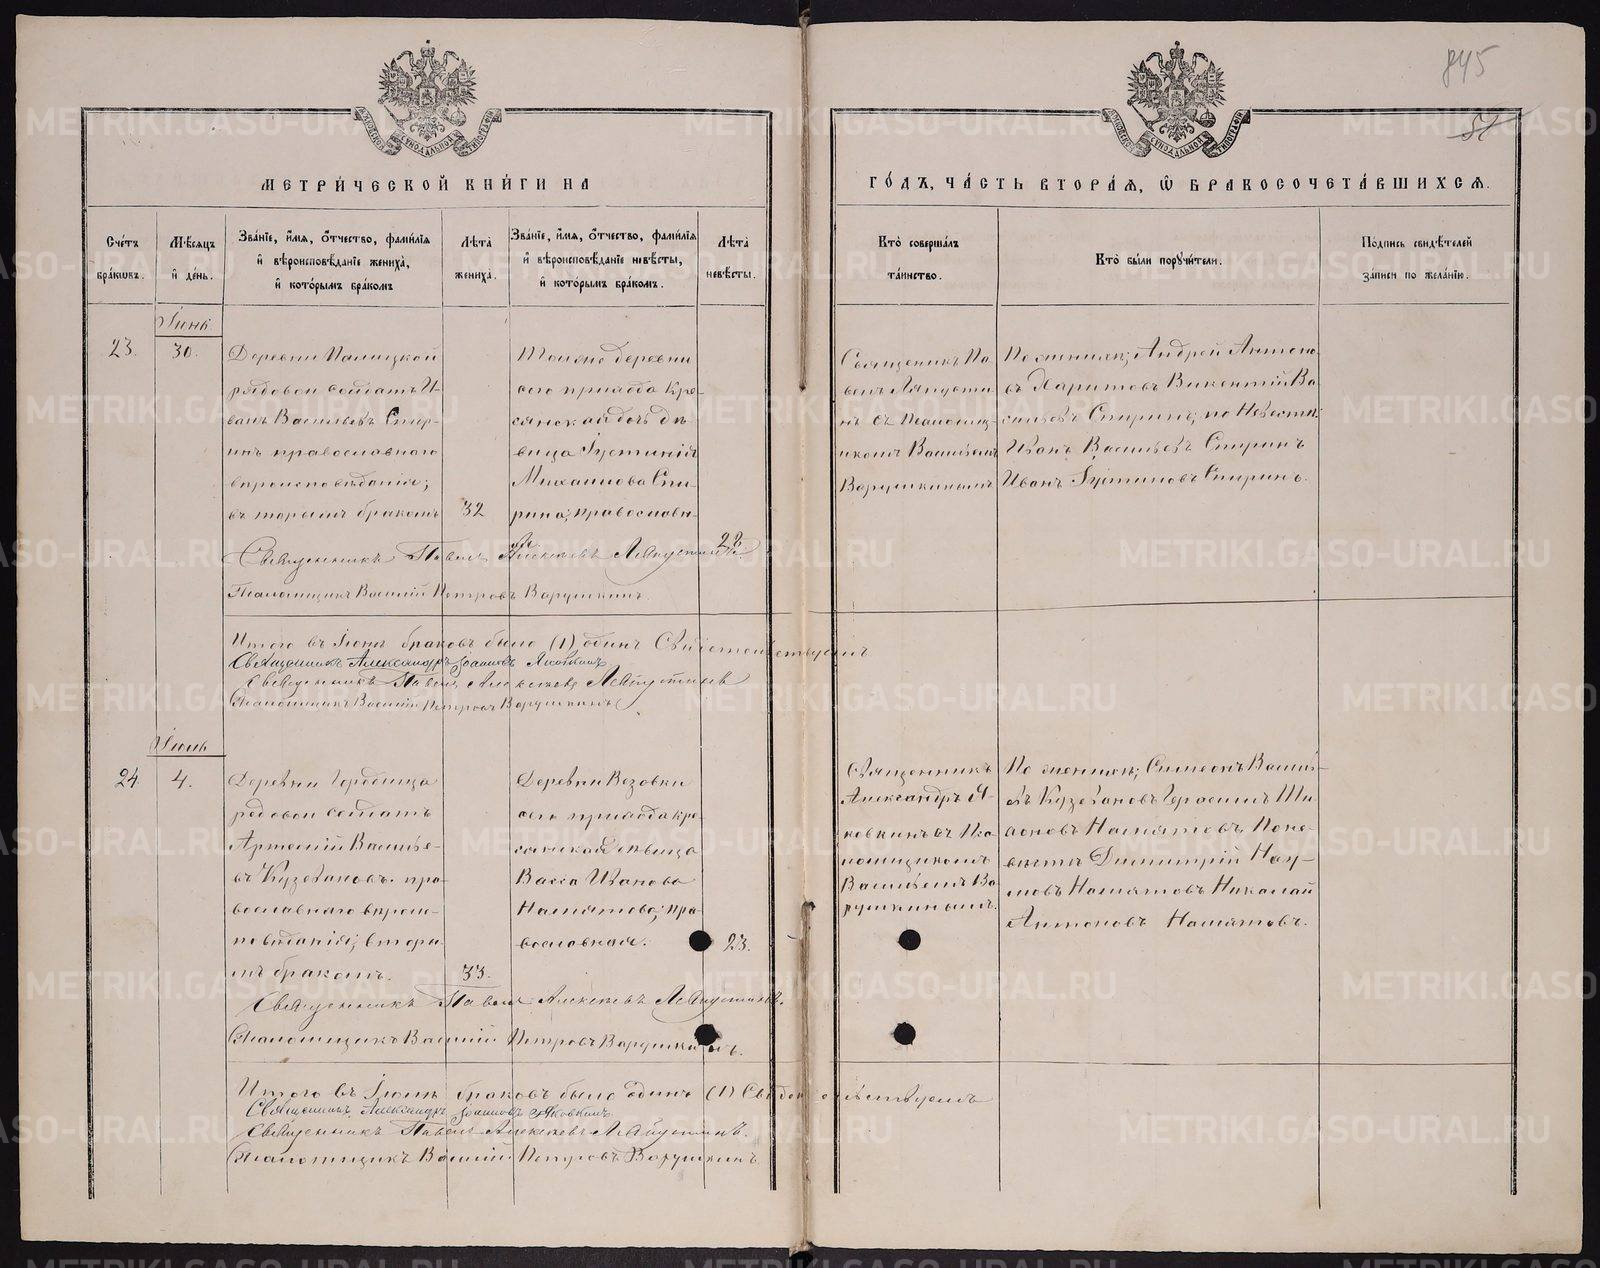 845
51
МЕТРИ́ЧЕСКОЙ КНИ́ГИ НА
ГО́ДЪ, ЧА́СТЬ ВТОРА́Я, Ѡ БРАКОСОЧЕТА́ВШИХСЯ.
Сче́тъ бра́кωвъ.
Мѣ́сяцъ и де́нь.
Зва́нїе, и́мя, ѻ́тчество, фами́лїя и вѣроисповѣ́данїе жениха̀, и кото́рымъ бра́комъ
Лѣ́та жениха̀.
Зва́нїе, и́мя, ѻ́тчество, фами́лїя и вѣроисповѣ́данїе невѣ́сты, и кото́рымъ бра́комъ.
Лѣ́та невѣ́сты.
Кто̀ соверша́лъ та́инство.
Кто̀ бы́ли поручи́тели.
По́дпись свидѣ́телей за́писи по жела́нїю.
23.
30.
Деревни
рядовой солдатъ И-
ванъ Васильевъ Спир-
инъ православнаго
вѣроисповѣданія;
вторымъ бракомъ
32
Тойже деревни
сего прихода Кре-
стьянская дочь дѣ-
вица
Михаилова Спи-
рина, православн-
ая.
22
Священникъ Па-
велъ Ляпусти-
нъ съ Псаломщ-
икомъ Васильемъ
Варушкинымъ
По женихѣ; Андрей Антоно-
въ Харитовъ Викентій Ва-
сильевъ Спиринъ; по Невѣстѣ:
Иванъ Васильевъ Спиринъ
Иванъ Спиринъ.
Священникъ Павелъ Алексѣевъ Ляпустинъ
Псаломщикъ Василій Петровъ Варушкинъ.
Итого въ Іюнѣ браковъ было (1) одинъ Свидѣтельствуемъ
Священникъ Александръ Іоанновъ Яковкинъ
Священникъ Павелъ Алексѣевъ Ляпустинъ
Псаломщикъ Василій Петровъ Варушкинъ
Іюль
24
4.
Деревни Городища
рядовой солдатъ
Артемій Василье-
въ Кузевановъ. пра-
вославнаго вѣроис-
повѣданія; вторы-
мъ бракомъ.
33.
Деревни Возовки
сего прихода кре-
стьянская дѣвица
Васса Иванова
Намятова; пра-
вославная.
23.
Священникъ
Александръ Я-
ковкинъ съ Пса-
ломщикомъ
Васильемъ Ва-
рушкинымъ.
По женихѣ; Симеонъ Василь-
евъ Кузевановъ Герасимъ
Намятовъ, По не-
вѣстѣ Димитрій Нау-
мовъ Намятовъ Николай
Антоновъ Намятовъ.
Священникъ Павелъ Алексѣевъ Ляпустинъ.
Псаломщикъ Василій Петровъ Варушкинъ.
Итого въ Іюлѣ браковъ было одинъ (1) Свидѣтельствуемъ
Священникъ Александръ Іоанновъ Яковкинъ
Священникъ Павелъ Алексѣевъ Ляпустинъ.
Псаломщикъ Василій Петровъ Варушкинъ
METRIKI.GASO-URAL.RU